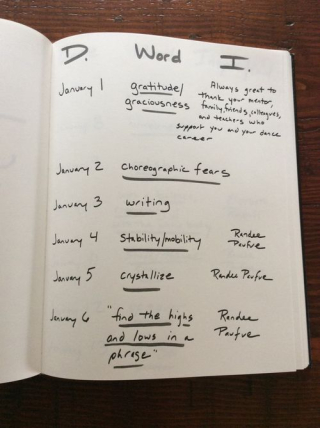 D. Word I.
January 1 gratitude/ Always great to
graciousness thank your mentor,
family, friends, colleagues,
and teachers who
support you and your dance
career
January 2 choreographic fears
January 3 writing
January 4 Stability/mobility Randee
Paufve
January 5 crystallize Randee Paufve
January 6 "find the highs Randee
and lows in a Paufve
phrase"